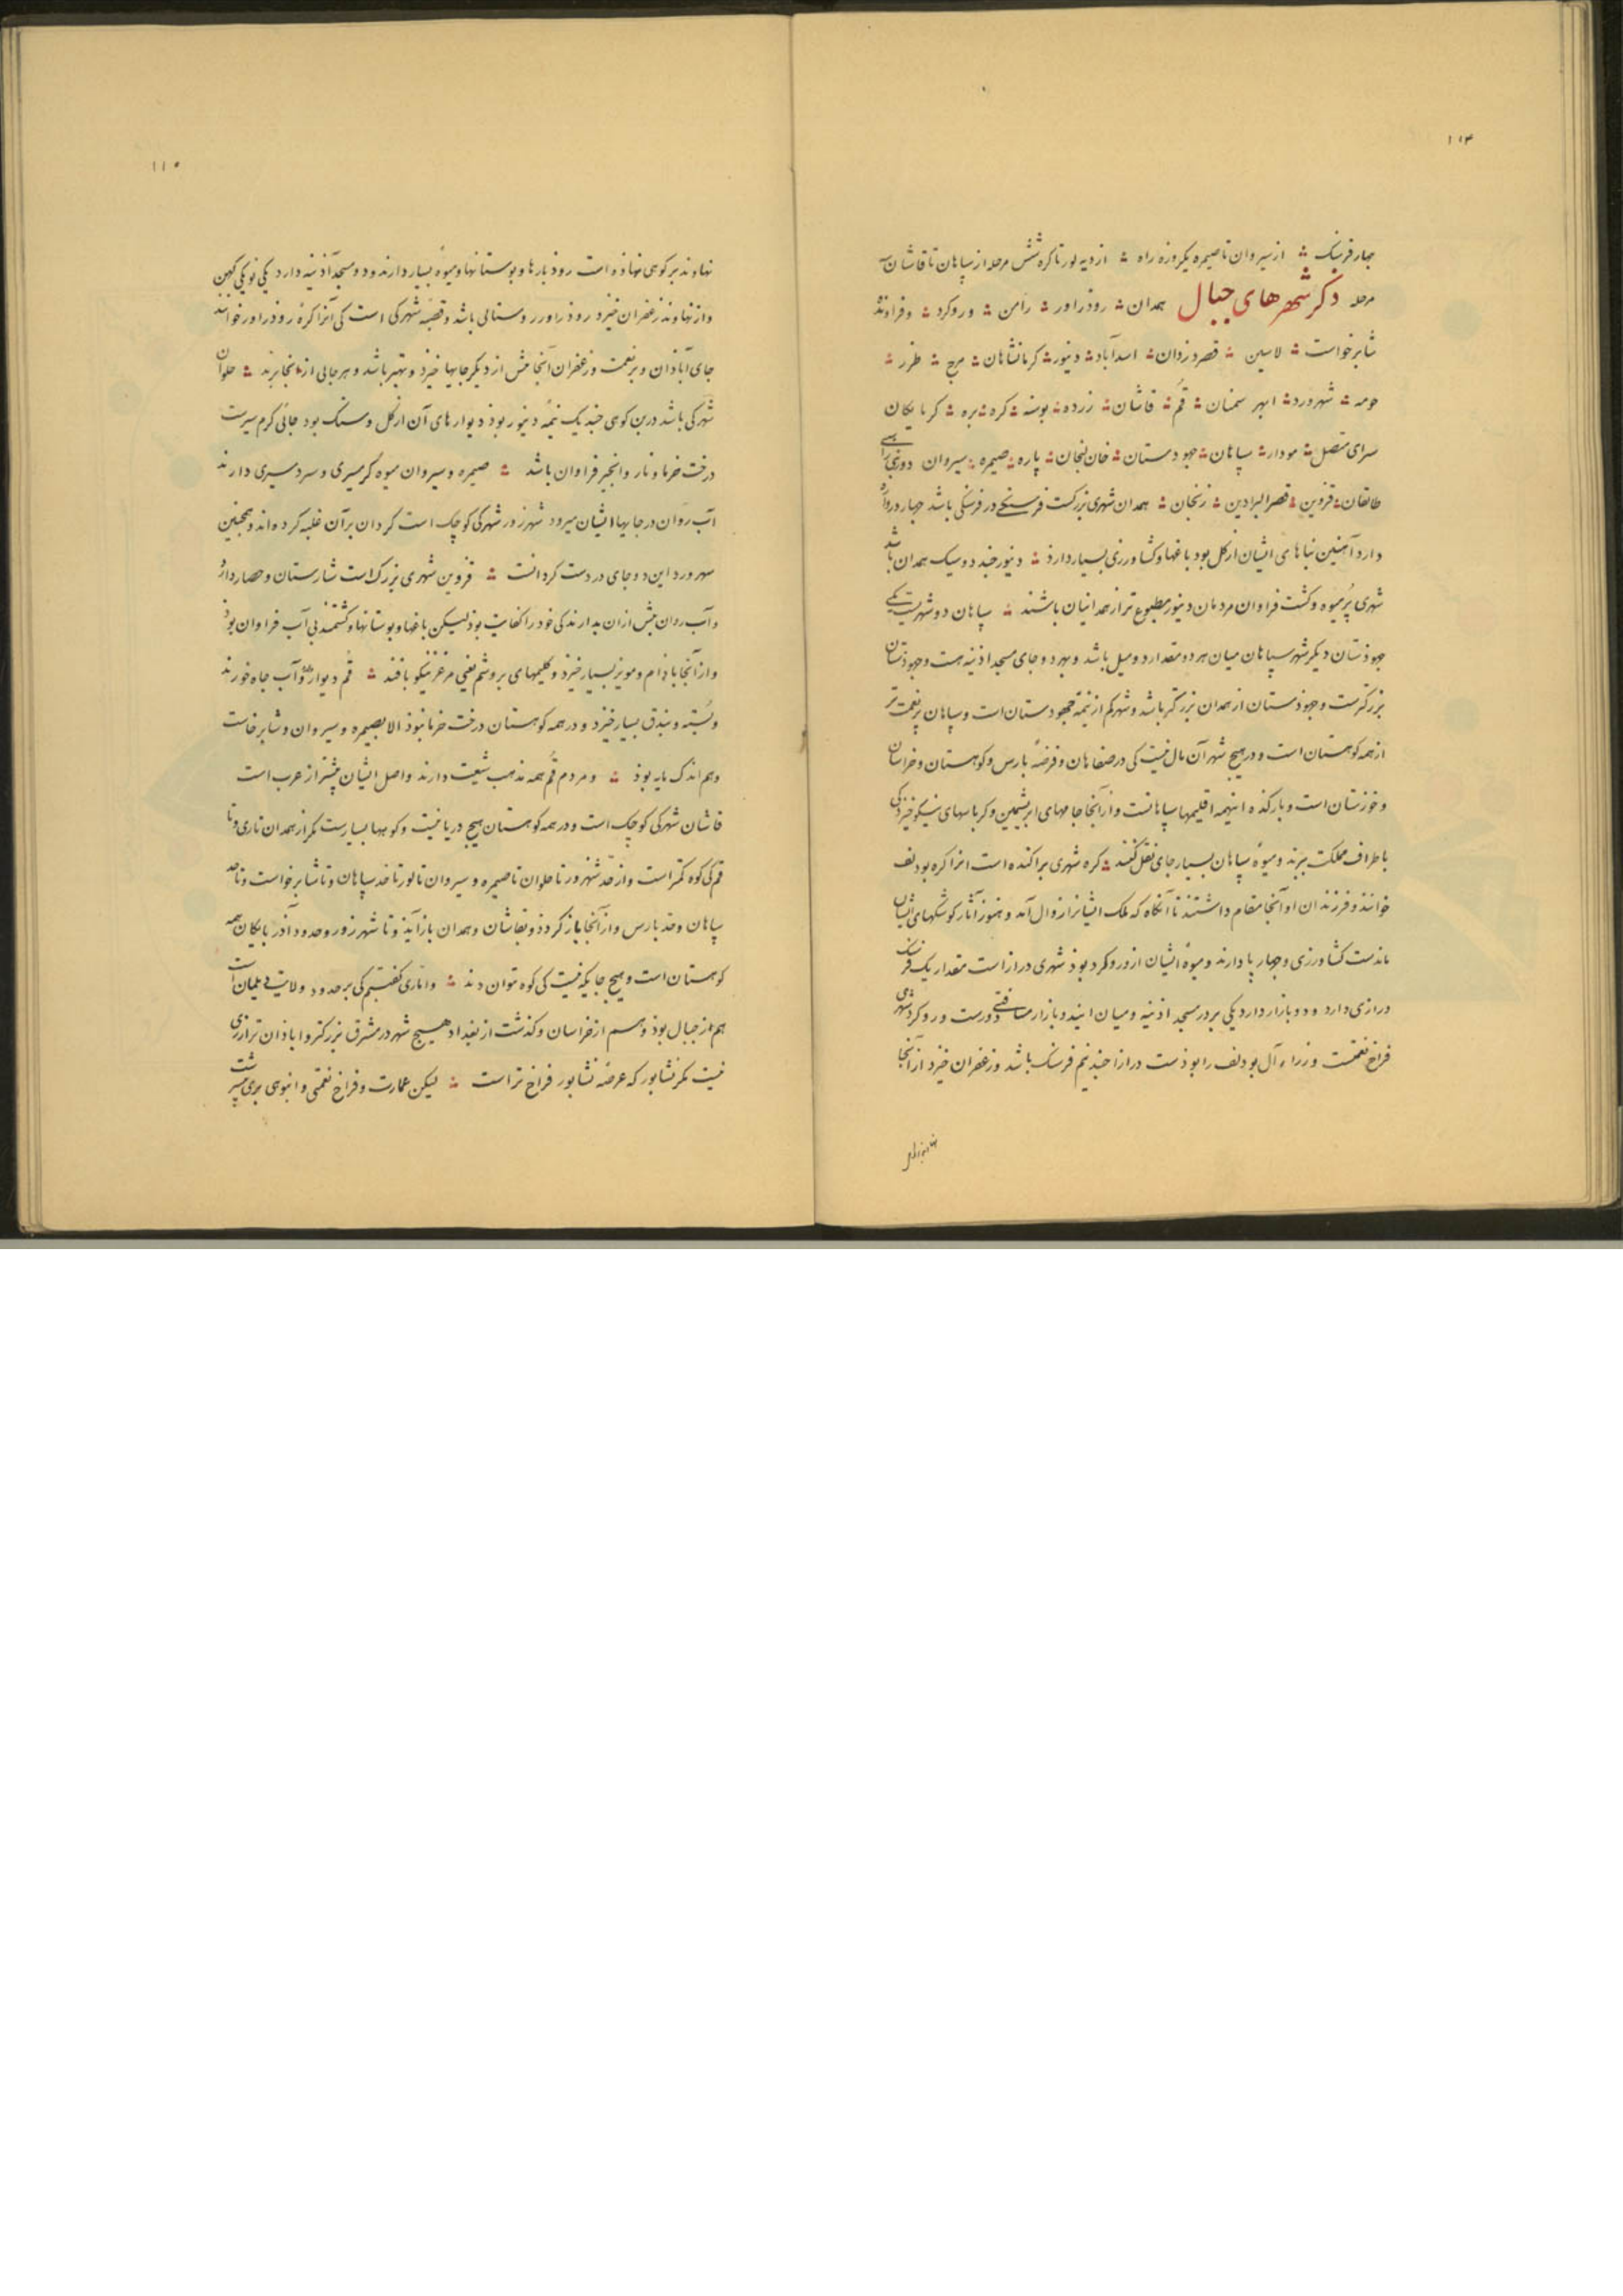 ۱۱۴
چهار فرسنگ ؞ از سیروان تا صیمره یکروزه راه ؞ از دیه لور تا کره شش مرحله از سپاهان تا قاشان سه
مرحله ذکر شهرهای جبال همدان ؞ روذراور ؞ رامن ؞ وروکرد ؞ و فراونده
شابرخواست ؞ لاسین ؞ قصر دزدان ؞ اسدآباد ؞ دینور ؞ کرمانشاهان ؞ مرج ؞ طزر ؞
حومه ؞ شهرورد ؞ ابهر سمنان ؞ قم ؞ قاشان ؞ زرده ؞ بوسنه ؞ کره ؞ بره ؞ کربایکان
سرای متصل ؞ مودار ؞ سپاهان ؞ جهودستان ؞ خان لنجان ؞ پاره ؞ صیمره ؞ سیروان دورنی
طالقان ؞ قزوین ؞ قصر البرادین ؞ زنجان ؞ همدان شهری بزرکست فرسنکی در فرسنکی باشد چهار دروازه
دارد آهنین بناهای ایشان از کل بود باغها و کشاورزی بسیار دارد ؞ دینور چند دو سیک همدان باشد
شهری پُرمیوه و کشت فراوان مردمان دینور مطبوع تر از همدانیان باشند ؞ سپاهان دو شهرست یکی
جهوذستان دیکر شهر سپاهان میان هر دو مقدار دو میل باشد و بهر دو جای مسجد اذینه هست و جهوذستان
بزرکترست و جهوذستان از همدان بزرکتر باشد و شهر کم از نیمه جهودستان است و سپاهان پرنعمت تر
از همه کوهستان است و در هیچ شهر آن مال نیست کی در صفاهان و فرضهٔ پارس و کوهستان و خراسان
و خوزستان است و بارکذه اینهمه اقلیمها سپاهانست و از آنجا جامهای ابریشمین و کرباسهای نیکو خیزد کی
باطراف مملکت ببرند و میوهٔ سپاهان بسیار جای نقل کنند ؞ کره شهری پراکنده است انرا کره بودلف
خوانند و فرزندان او آنجا مقام داشتند تا آنکاه که ملک ایشانرا زوال آمد و هنوز آثار کوشکهای ایشان
ماندست کشاورزی و چهارپا دارند و میوهٔ ایشان از وروکرد بوذ شهری دراز است مقدار یک فرسنک
درازی دارد و دو بازار دارد یکی بر در مسجد اذینه و میان ایند و بازار مسافتی دورست وروکرد شهری
فراخ نعمتست وزراء آل بودلف را بوذست درازا چند نیم فرسنک باشد و زعفران خیزد از آنجا
۱۱۵
نهاوند بر کوهی نهاذه است روذبارها و بوستانها و میوه بسیار دارند و دو مسجد آذینه دارد یکی نو یکی کهن
و از نهاوند زعفران خیزد روذراور روستائی باشد و قصبه شهرکی است کی آنرا کرهٔ روذراور خوانند
جای آباذان و پرنعمت و زعفران آنجا بیش از دیکر جایها خیزد و بهتر باشد و هر جائی از آنجا برند ؞ حلوان
شهرکی باشد درین کوهی چند یک نیمهٔ دینور بوذ دیوارهای آن از کل و سنک بود جائی کرم سیرست
درخت خرما و نار و انجیر فراوان باشد ؞ صیمره و سیروان میوه کرمسیری و سردسیری دارند
آب روان در جایهاء ایشان میرود شهرزور شهرکی کوچک است کردان بر آن غلبه کرده اند و همچنین
سهرورد این دو جای در دست کردانست ؞ قزوین شهری بزرک است شارستان و حصار دارد
و آب روان بیش از ان ندارند کی خود را کفایت بوذ لیکن باغها و بوستانها و کشتمند بی آب فراوان بوذ
و از آنجا باذام و مویز بسیار خیزد و کلیمهای بروشم یعنی مرغز نیکو بافند ؞ قُم دیوار دارد و آب چاه خورند
و پسته و بندق بسیار خیزد و در همه کوهستان درخت خرما نبوذ الا بصیمره و سیروان و شابرخاست
و هم اندک مایه بوذ ؞ و مردم قُم همه مذهب شیعت دارند و اصل ایشان بیشتر از عرب است
قاشان شهرکی کوچک است و در همه کوهستان هیچ دریا نیست و کوهها بسیارست مکر از همدان تا ری و تا
قم کی کوه کمتر است و از حد شهرزور تا حلوان تا صیمره و سیروان تا لور تا حد سپاهان و تا شابرخواست و تا حد
سپاهان و حد پارس و از آنجا باز کردذ و بقاشان و همدان باز آیذ و تا شهرزور و حدود آذربایکان همه
کوهستان است و هیچ جایکه نیست کی کوه نتوان دید ؞ و اما ری کفتیم کی بر حدود ولایت دیلمان است
هم از جبال بوذ و هم از خراسان و کذشت از بغداد هیچ شهر در مشرق بزرکتر و اباذان تر از ری
نیست مکر نشابور که عرضه نشابور فراخ تر است ؞ لیکن عمارت و فراخ نعمتی و انبوهی بری بیشتر است